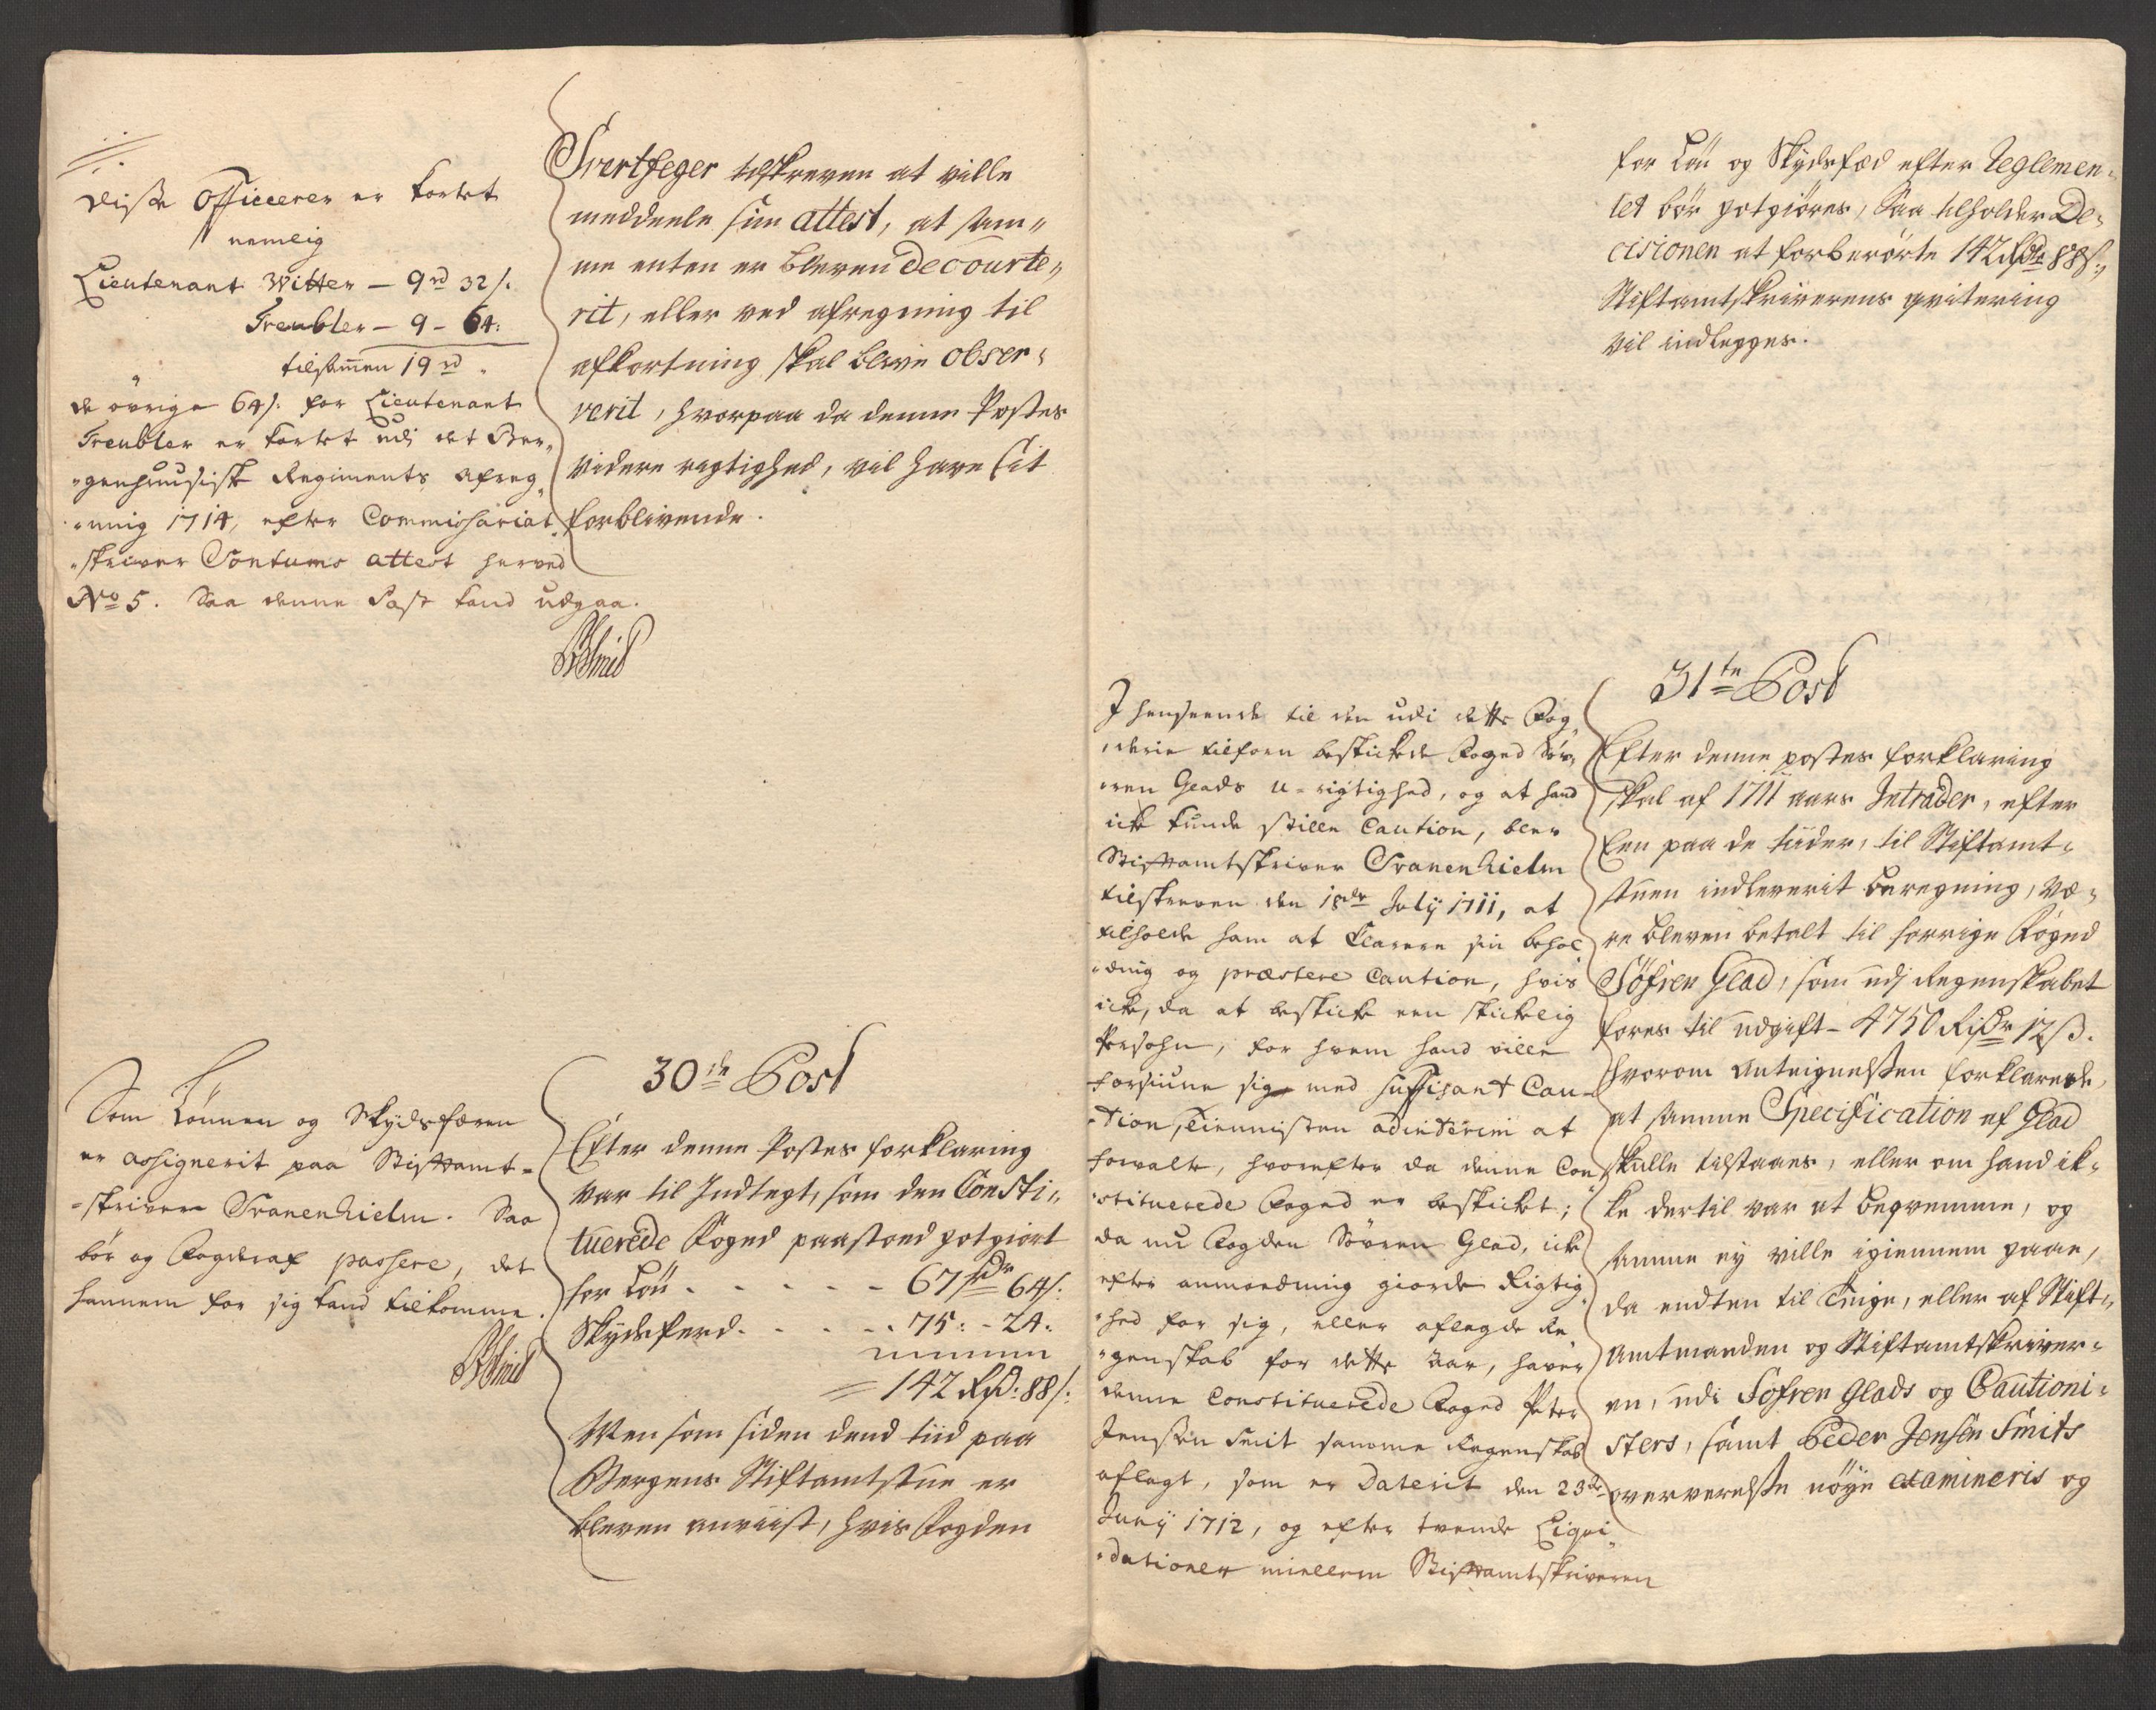 Disse Officerer er kortet
nemlig
Lieutenant Witter – 9 rd 32 s.
Treubler – 9 – 64:
tilsamen 19 rd.
de övrige 64 s. for Lieutenant
Treubler er kortet udj det Ber„
„genhuusiske Regiments afreg„
„ning 1714, efter Commissariat
„skriver Tontums attest herved
No 5. Saa denne Post kand udgaa.
Svertfeger tilskreven at ville
meddeele sin attest, at sam„
me enten er bleven decourte„
rit, eller ved afregning til
afkortning skal blive obser„
verit, hvorpaa da denne Postes
videre rigtighed, vil have sit
forblivende.
Som Lönnen og Skydsfæren
er assignerit paa Stiftamt-
-skriver Svanenhielm. Saa
bör og Fogderaf passere, det
hannem for sig kand tilkomme.
30de Post
Efter denne Postes forklaring
var til Indtegt, som den Consti„
tuerede Foged paastoed gotgiort
for Lön - - - - - 67 rdr 64 s:
Skydsferd. - - - - 75: - 24.
= 142 Rd: 88 s:
Men som siden dend tiid paa
Bergens Stiftamtstue er
bleven anviist, hvis Fogden
for Lön og Skydsfærd efter Reglemen„
tet bör gotgiöres, Saa tilholder De„
cisionen at forberörte 142 Rdr 88 s:,
Stiftamtskriverens qvitering
vil indlegges.
I henseende til den udi dette Fog„
„derie tilforn beskickede Foged Sö„
„ren Glads u-rigtighed, og at hand
icke kunde stille Caution, blev
Stiftamtskriver Svanenhielm
tilskreven den 18de July 1711, at
tilholde ham at Clarere sin behol„
„dning og præstere Caution, hvis
icke, da at beskicke een skickelig
Persohn, for hvem hand ville
forsiune sig med suffisant Cau-
-tion, Tiennisten ad interim at
forvalte, hvorefter da denne Con„
„stituerede Foged er beskicket;
da nu Fogden Sövren Glad, icke
efter anmoedning giorde Rigtig„
„hed for sig, eller aflagde Re„
„genskab for dette aar, haver
denne Constituerede Foged Peter
Jenssen Smit samme Regenskab
aflagt, som er Daterit den 23de
Juny 1712, og efter tvende Liqvi„
„dationer mellem Stiftamtskriveren
31te Post
Efter denne postes forklaring
skal af 1711 aars Intrader, efter
Een paa de tiider, til Stiftamt„
stuen indleverit beregning, væ„
re bleven betalt til forrige Foged
Söfren Glad, som udj Regenskabet
føres til udgift – 4750 Rixdr 12 ß.
hvorom Antegnelssen forklarede,
at samme Specification af Glad
skulle tilstaaes, eller om hand ik„
ke dertil var at beqvemme, og
samme ej ville igiennem gaae,
da endten til Tinge, eller af Stift„
amtmanden og Stiftamtskriver„
en, udi Sofren Glads og Cautioni„
sters, samt Peder Jensen Smits
oververelsse nöye examineris og